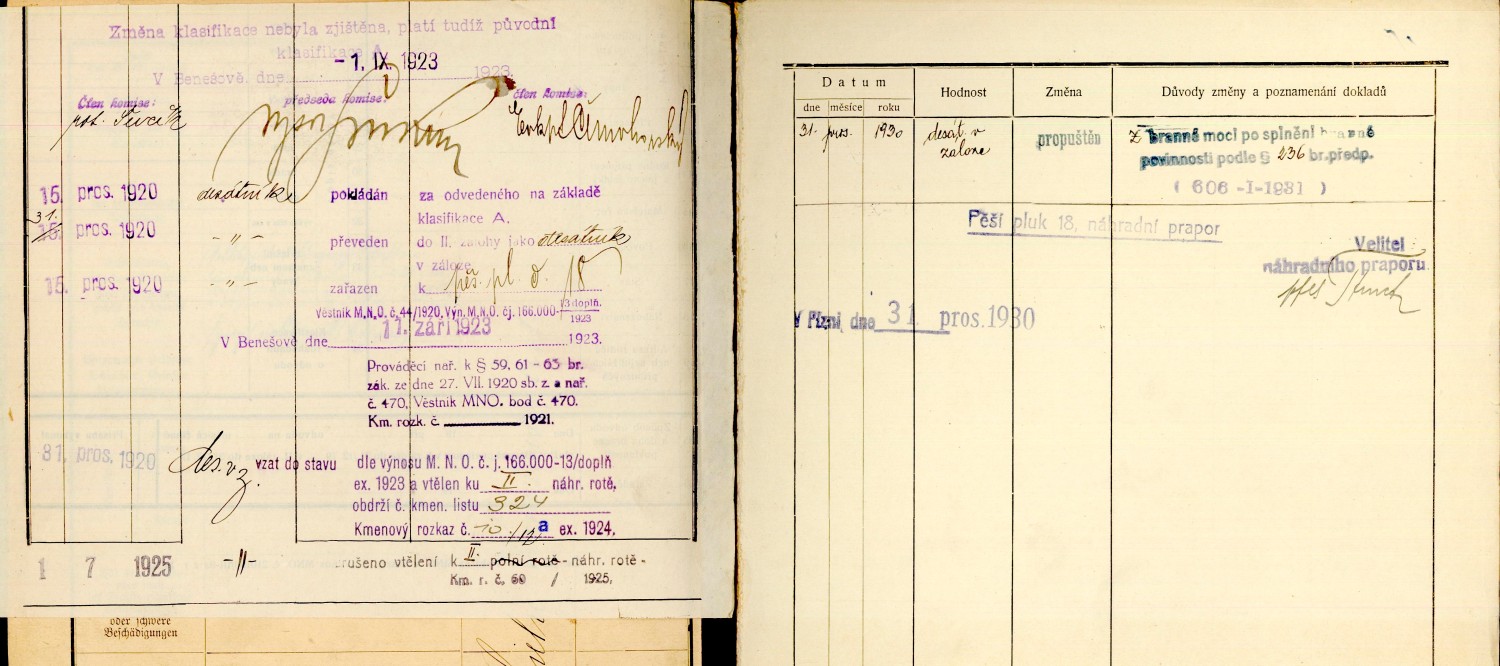 Změna klasifikace nebyla zjištěna, platí tudíž původní
klasifikace A.
-1. IX. 1923
V Benešově dne 1923.
Člen komise: předseda komise: člen komise:
15. pros. 1920 desátník pokládán za odvedeného na základě
klasifikace A.
31.
15. pros. 1920 -"- převeden do II. zálohy jako desátník
v záloze
15. pros. 1920 -"- zařazen k pěš. pl. č. 18
Věstník M.N.O. č. 44/1920, Výn. M.N.O. čj. 166.000-13 doplň./1923
11. září 1923
V Benešově dne 1923.
Prováděcí nař. k § 59, 61 - 63 br.
zák. ze dne 27. VII. 1920 sb. z. a nař.
č. 470, Věstník MNO. bod č. 470.
Km. rozk. č. 1921.
31. pros. 1920 des. v z. vzat do stavu dle výnosu M. N. O. č. j. 166.000-13/doplň
ex. 1923 a vtělen ku II. náhr. rotě,
obdrží č. kmen. listu 324
Kmenový rozkaz č. 10/12 a ex. 1924.
1 7 1925 -"- zrušeno vtělení k II. polní rotě - náhr. rotě -
Km. r. č. 60 / 1925.
oder schwere
Beschädigungen
Datum Hodnost Změna Důvody změny a poznamenání dokladů
dne měsíce roku
31. pros. 1930 desát. v záloze propuštěn z branné moci po splnění branné
povinnosti podle § 236 br. předp.
(606-I-1931)
Pěší pluk 18, náhradní prapor
Velitel
náhradního praporu
V Plzni, dne 31 pros. 1930